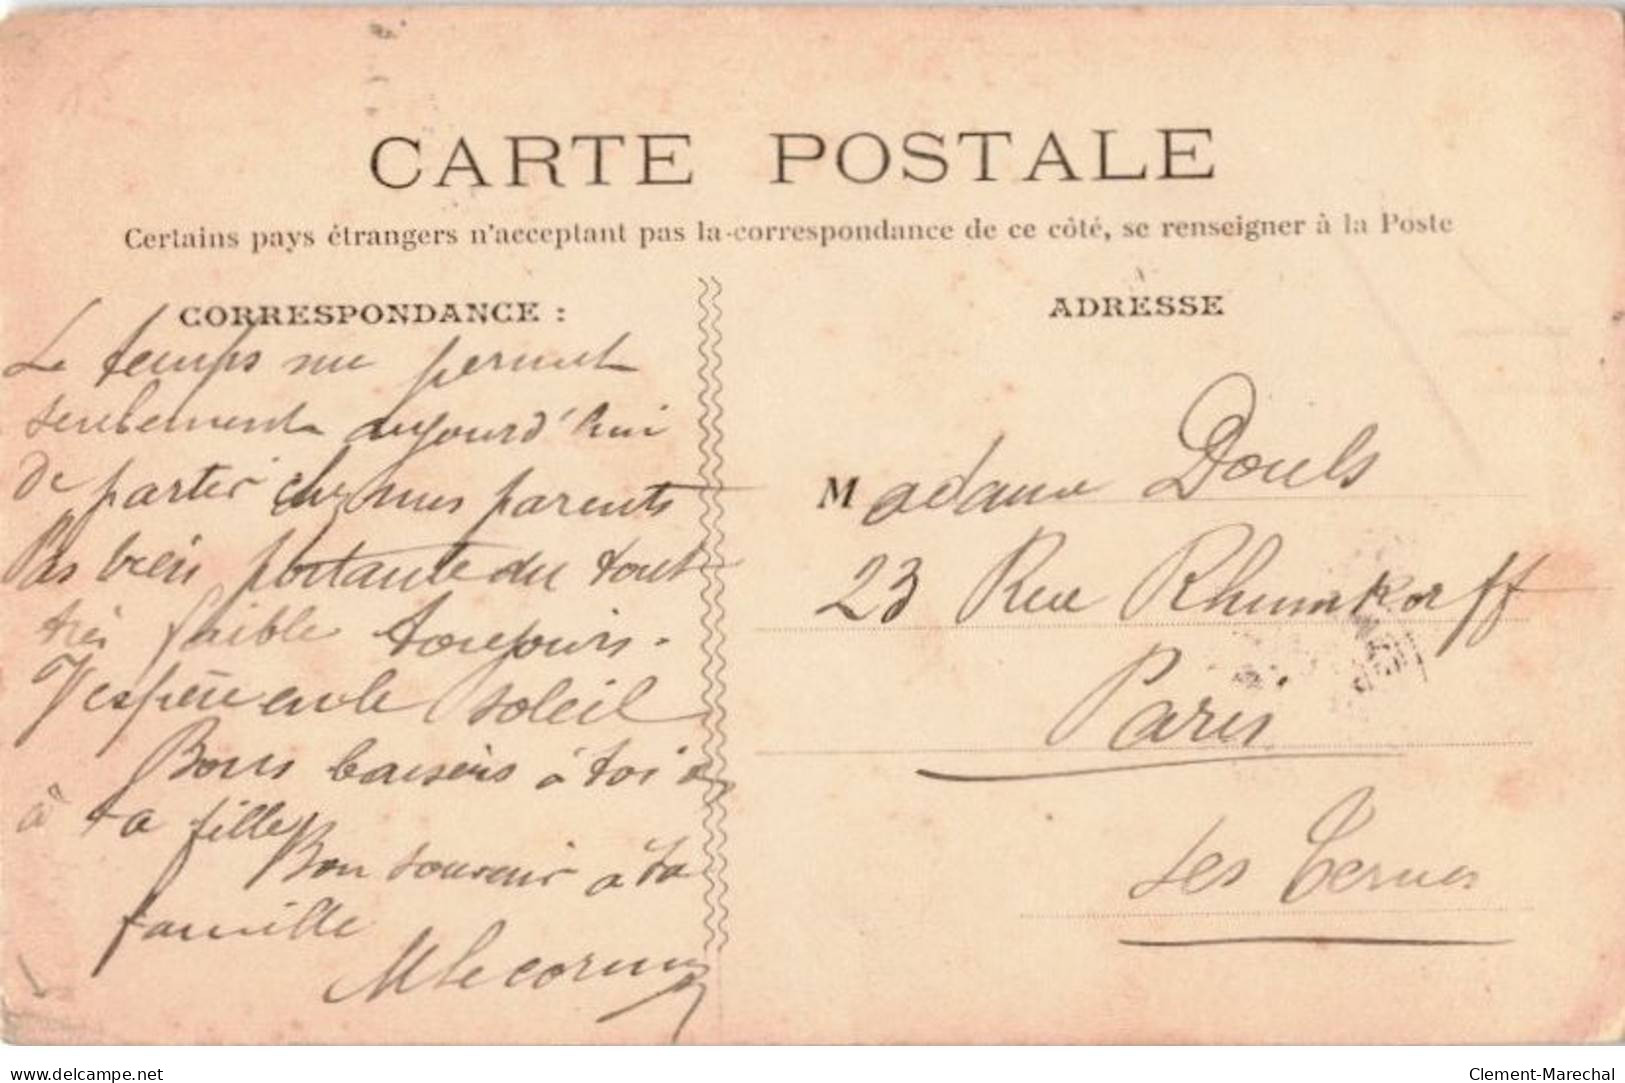 CARTE POSTALE
Certains pays étrangers n'acceptant pas la correspondance de ce côté, se renseigner à la Poste
CORRESPONDANCE :
Le temps me permet
seulement aujourd'hui
de partir chez mes parents
Pas bien portante du tout
très faible toujours.
J'espère en le soleil
Bons baisers à toi
à ta fille
Bon souvenir à ta
famille
ADRESSE
Madame Douls
23 Rue Rhumkorff
Paris
Les Ternes
delcampe.net
Clement-Marechal